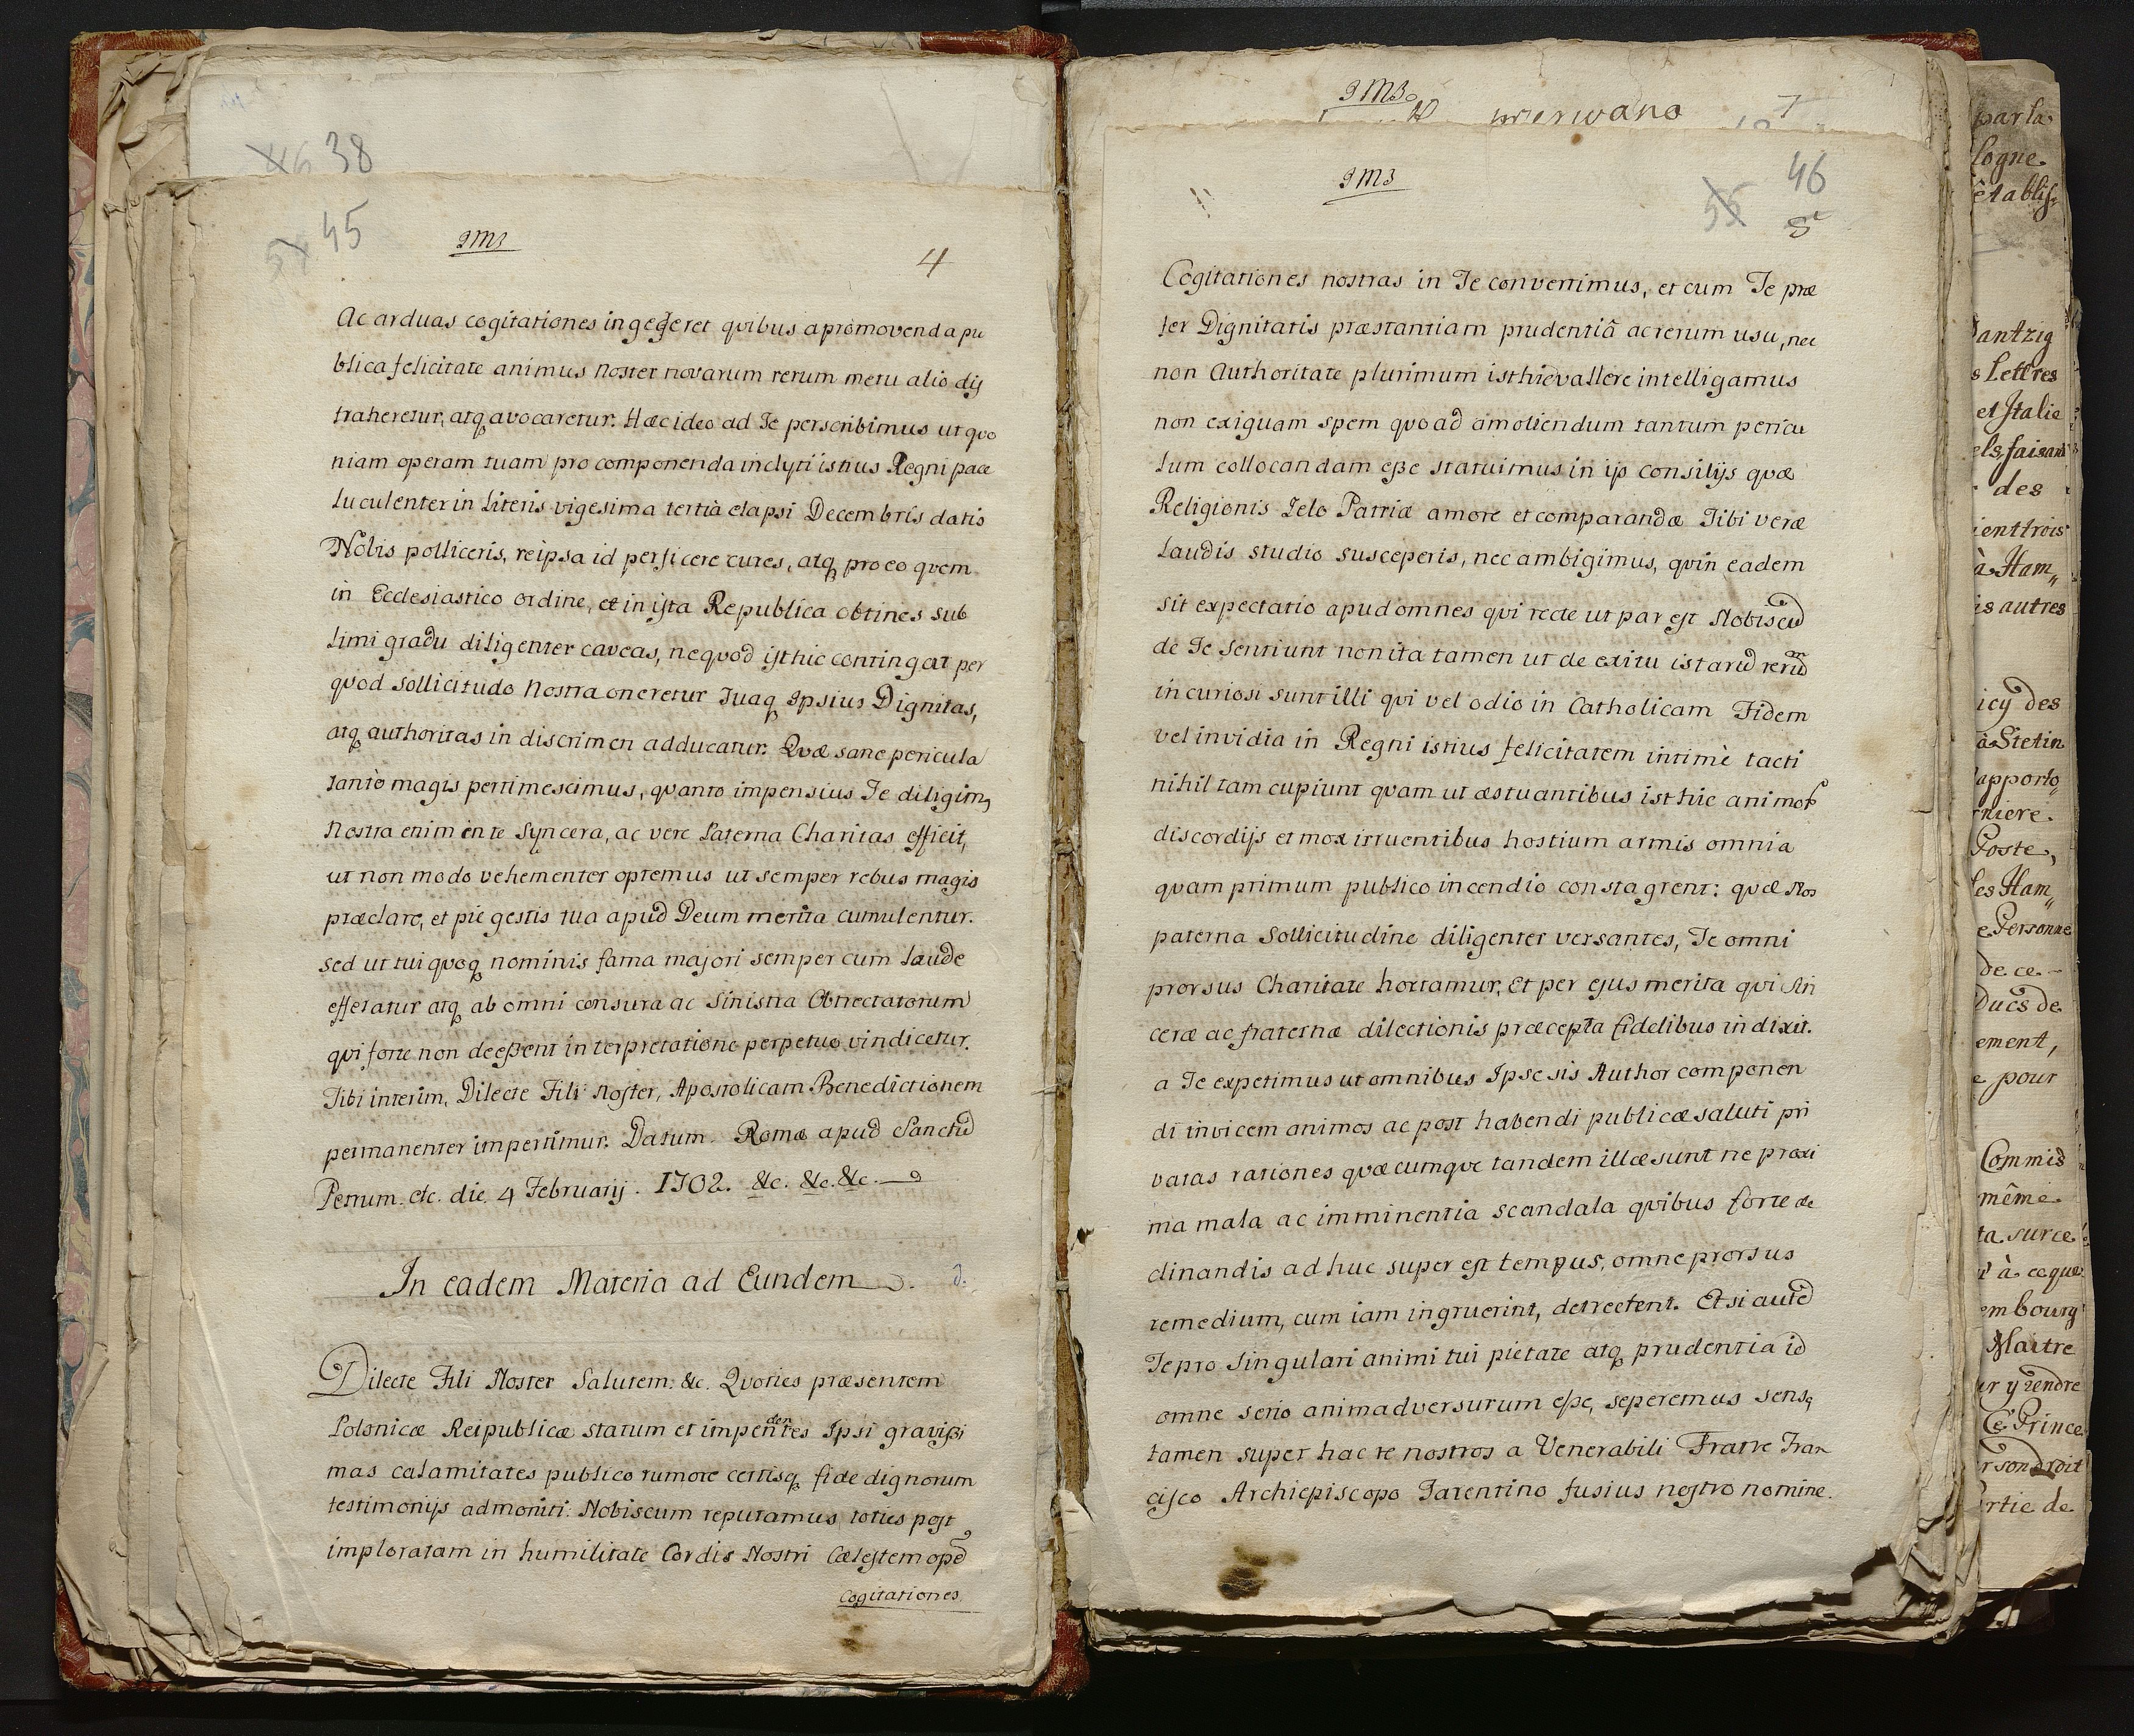 38
45
4
Ac arduas cogitationes ingereret quibus a promovenda pu
blica felicitate animus noster novarum rerum metu alio dis
traheretur, atq avocaretur. Hæc ideo ad Te perscribimus ut quo
niam operam tuam pro componenda inclyti istius Regni pace
luculenter in Literis vigesima tertia elapsi Decembris datis
Nobis polliceris, reipsa id perficere cures, atq pro eo quem
in Ecclesiastico ordine, et in ista Republica obtines sub
limi gradu diligenter caveas, ne quod isthic contingat per
quod sollicitudo Nostra oneretur Tuaq Ipsius Dignitas,
atq authoritas in discrimen adducatur. Quæ sane pericula
tantò magis pertimescimus, quanto impensius Te diligim9
Nostra enim in te Syncera, ac vere Paterna Charitas efficit,
ut non modo vehementer optemus ut semper rebus magis
præclare, et pie gestis tua apud Deum merita cumulentur.
sed ut tui quoq nominis fama majori semper cum laude
efferatur atq ab omni censura ac Sinistra Obtrectatorum
qui forte non deeßent interpretatione perpetuo vindicetur.
Tibi interim, Dilecte Fili Noster, Apostolicam Benedictionem
permanenter impertimur. Datum. Romæ apud Sanctū
Petrum. etc. die 4 Februarij. 1702. &c. &c. &c.
In eadem Materia ad Eundem
Dilecte Fili Noster Salutem: &c. Quoties præsentem
Polonicæ Reipublicæ statum et impendentes Ipsi gravißi
mas calamitates publico rumore certisq fide dignorum
testimonijs admoniti: Nobiscum reputamus toties post
imploratam in humilitate Cordis Nostri Cælestem opē
Cogitationes
46
8
Cogitationes nostras in Te convertimus, et cum Te præ
ter Dignitatis præstantiam prudentiâ ac rerum usu, nec
non Authoritate plurimum isthic vallere intelligamus
non exiguam spem quoad amoliendum tantum pericu
lum collocandam eße statuimus in ijs consilijs quæ
Religionis Zelo Patriæ amore et comparandæ Tibi veræ
laudis studio susceperis, nec ambigimus, quin eadem
sit expectatio apud omnes qui recte ut par est Nobiscū
de Te sentiunt non ita tamen ut de exitu istarū rerū
incuriosi sunt illi qui vel odio in Catholicam Fidem
vel invidia in Regni istius felicitatem intimè tacti
nihil tam cupiunt quam ut æstuantibus isthic animor
discordijs et mox irruentibus hostium armis omnia
quam primum publico incendio constagrent: quæ Nos
paterna Sollicitudine diligenter versantes, Te omni
prorsus Charitate hortamur, Et per ejus merita qui Sin
ceræ ac fraternæ dilectionis præcepta fidelibus indixit.
a Te expetimus ut omnibus Ipse sis Author componen
di invicem animos ac post habendi publicæ saluti pri
vatas rationes quæcumque tandem illæ sunt ne proxi
ma mala ac imminentia scandala quibus forte de
clinandis adhuc super est tempus, omne prorsus
remedium, cum iam ingruerint, detrectent. Et si autē
Te pro Singulari animi tui pietate atq prudentia id
omne serio animadversurum eße, seperemus sens9
tamen super hac re nostros a Venerabili Fratre Fran
cisco Archiepiscopo Tarentino fusius nostro nomine.
par la
logne.
établis,
Dantzig
s Lettres
et Italie
els, faisant
des
à Ham,,
is autres
icy des
à Stetin
niere.
Poste,
les Ham,,
e Personne
de ce
Ducs de
ement,
e pour
Commis
même
ta. surce
t à ce que
embourg
Maitre
ur y rendre
Ce Prince
r son droit
rtie de